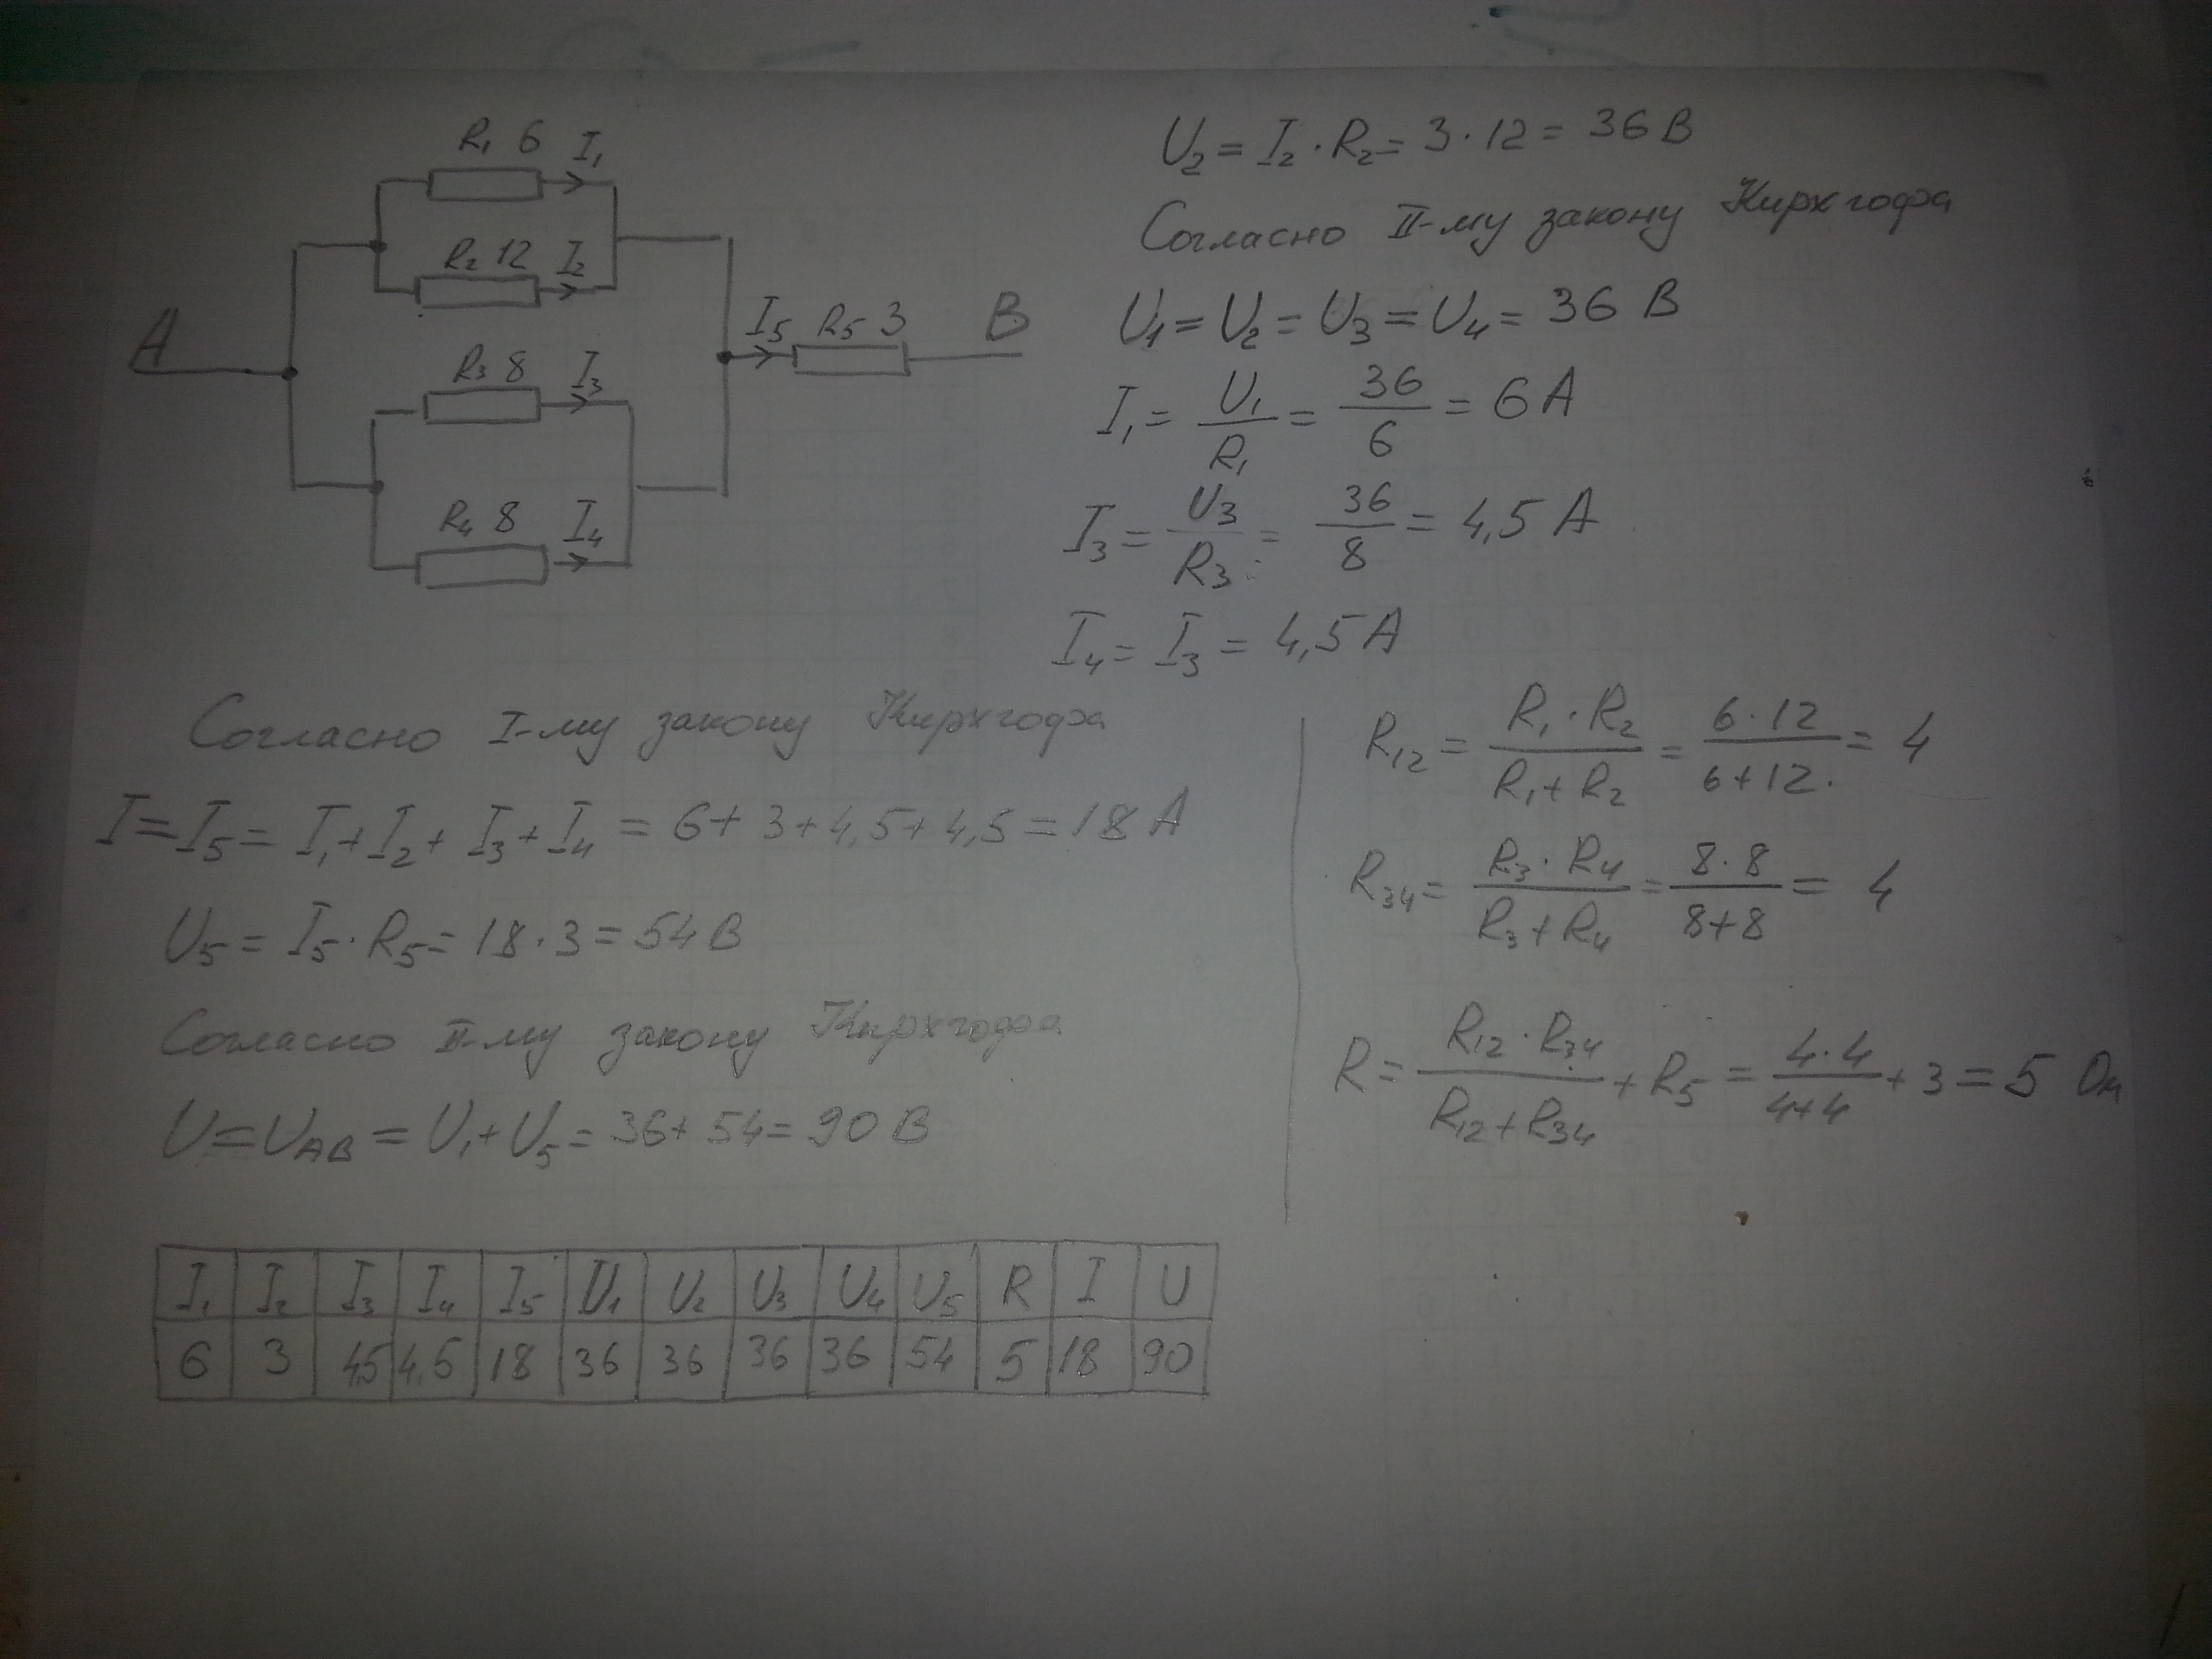 R₁ 6 I₁
R₂ 12 I₂
A
R₃ 8 I₃
R₄ 8 I₄
I₅ R₅ 3 B
U₂ = I₂ · R₂ = 3 · 12 = 36 В
Согласно II-му закону Кирхгофа
U₁ = U₂ = U₃ = U₄ = 36 В
I₁ = U₁/R₁ = 36/6 = 6 А
I₃ = U₃/R₃ = 36/8 = 4,5 А
I₄ = I₃ = 4,5 А
Согласно I-му закону Кирхгофа
I = I₅ = I₁ + I₂ + I₃ + I₄ = 6 + 3 + 4,5 + 4,5 = 18 А
U₅ = I₅ · R₅ = 18 · 3 = 54 В
Согласно II-му закону Кирхгофа
U = U_AB = U₁ + U₅ = 36 + 54 = 90 В
R₁₂ = R₁ · R₂/R₁ + R₂ = 6 · 12/6 + 12 = 4
R₃₄ = R₃ · R₄/R₃ + R₄ = 8 · 8/8 + 8 = 4
R = R₁₂ · R₃₄/R₁₂ + R₃₄ + R₅ = 4 · 4/4 + 4 + 3 = 5 Ом
I₁ I₂ I₃ I₄ I₅ U₁ U₂ U₃ U₄ U₅ R I U
6 3 4,5 4,5 18 36 36 36 36 54 5 18 90